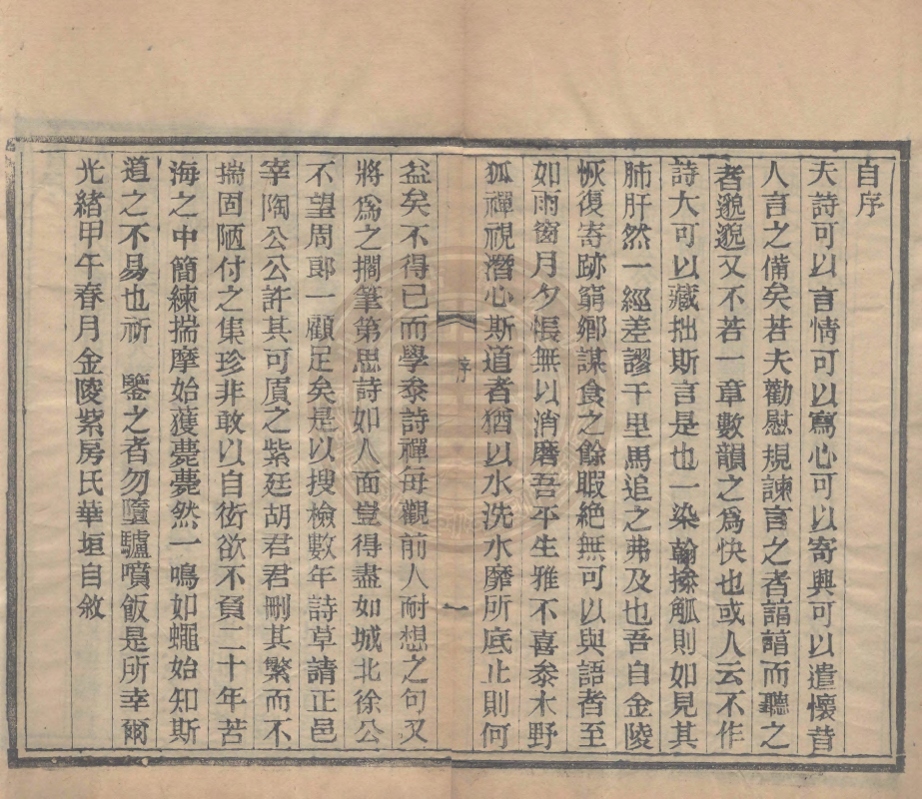 自序
夫詩可以言情可以寫心可以寄興可以遣懷昔
人言之備矣若夫勸慰規諫言之者諄諄而聽之
者邈邈又不若一章數韻之爲快也或人云不作
詩大可以藏拙斯言是也一染翰操觚則如見其
肺肝然一經差謬千里馬追之弗及也吾自金陵
恢復寄跡窮鄉謀食之餘暇絶無可以與語者至
如雨窗月夕悵無以消磨吾平生雅不喜叅木野
狐禪視潛心斯道者猶以水洗水靡所底止則何
序
一
益矣不得已而學叅詩禪每觀前人耐想之句又
將爲之擱筆第思詩如人面豈得盡如城北徐公
不望周郎一顧足矣是以搜檢數年詩草請正邑
宰陶公公許其可質之紫廷胡君君刪其繁而不
揣固陋付之集珍非敢以自衒欲不負二十年苦
海之中簡練揣摩始獲薨薨然一鳴如蠅始知斯
道之不易也祈　鑒之者勿墮驢噴飯是所幸爾
光緒甲午春月金陵紫房氏華垣自敘